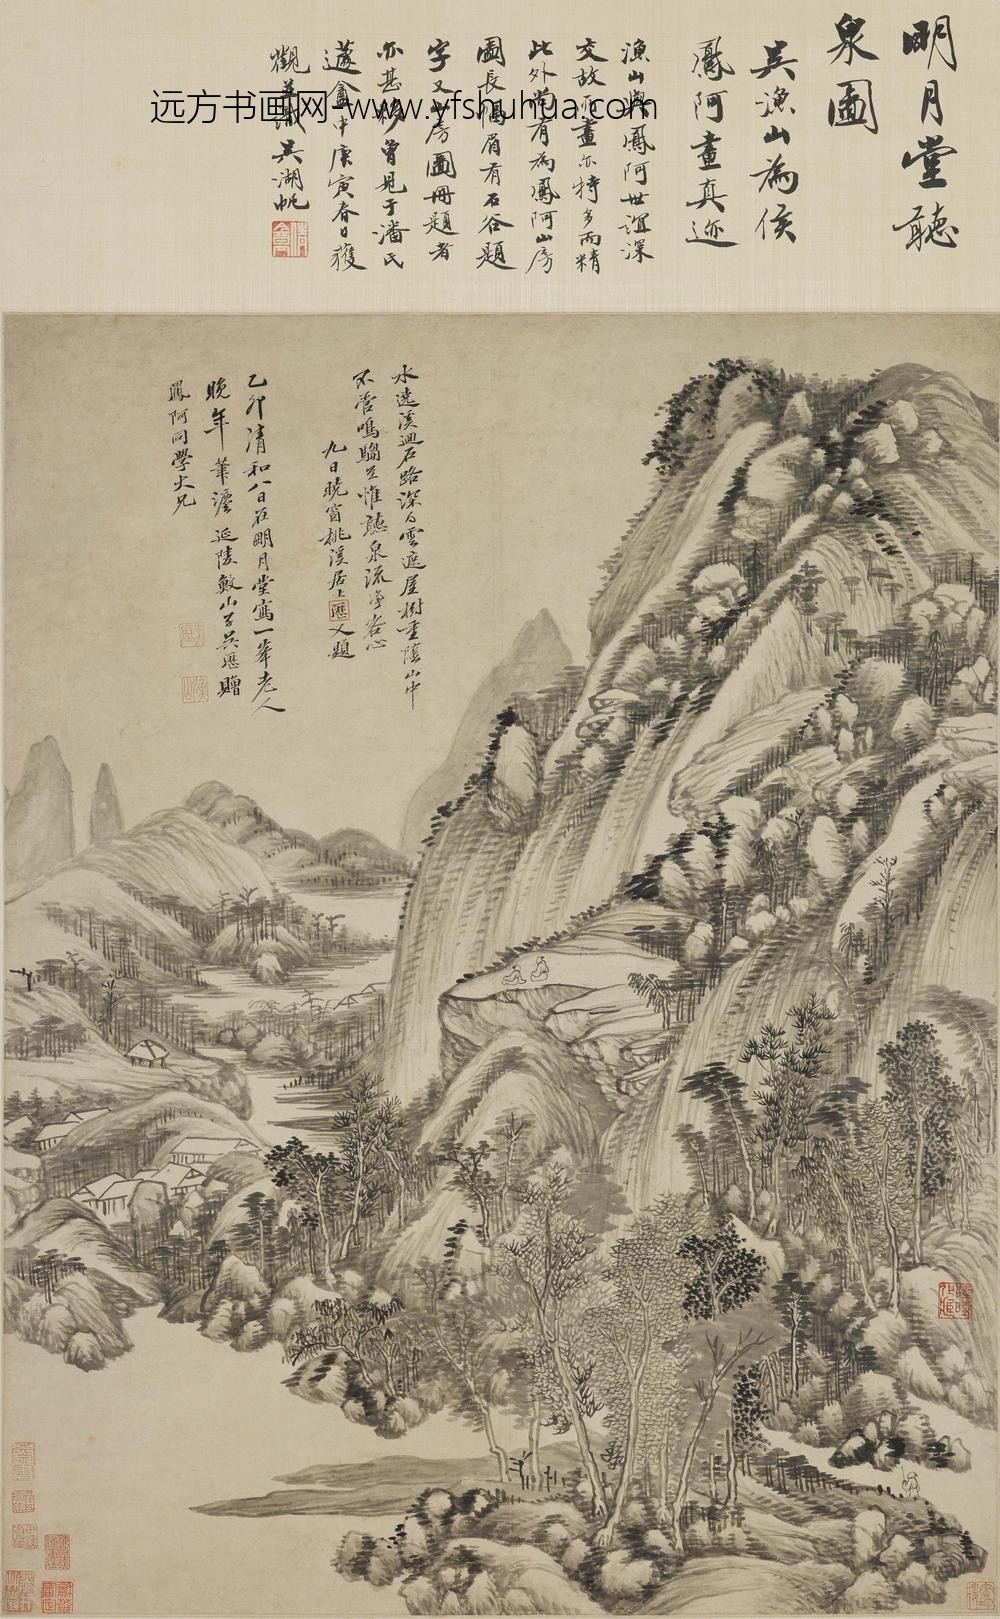 明月堂聽
泉圖
吳漁山為侯
鳳阿畫真迹
漁山與鳳阿世誼深
交故所畫亦特多而精
此外尚有為鳳阿山房
圖長隔眉有石谷題
字又山房圖冊題者
亦甚夥曾見于潘氏
蘧盦中庚寅春日獲
觀并識吳湖帆
远方书画网-www.yfshuhua.com
水遶溪迴石路深白雲遮屋樹重陰山中
不管鳴騶至惟聽泉流淨客心
九日曉窗桃溪居上歷又題
乙卯清和八日在明月堂寫一峯老人
晚年筆濃延陵教山子吳歷贈
鳳阿同學大兄